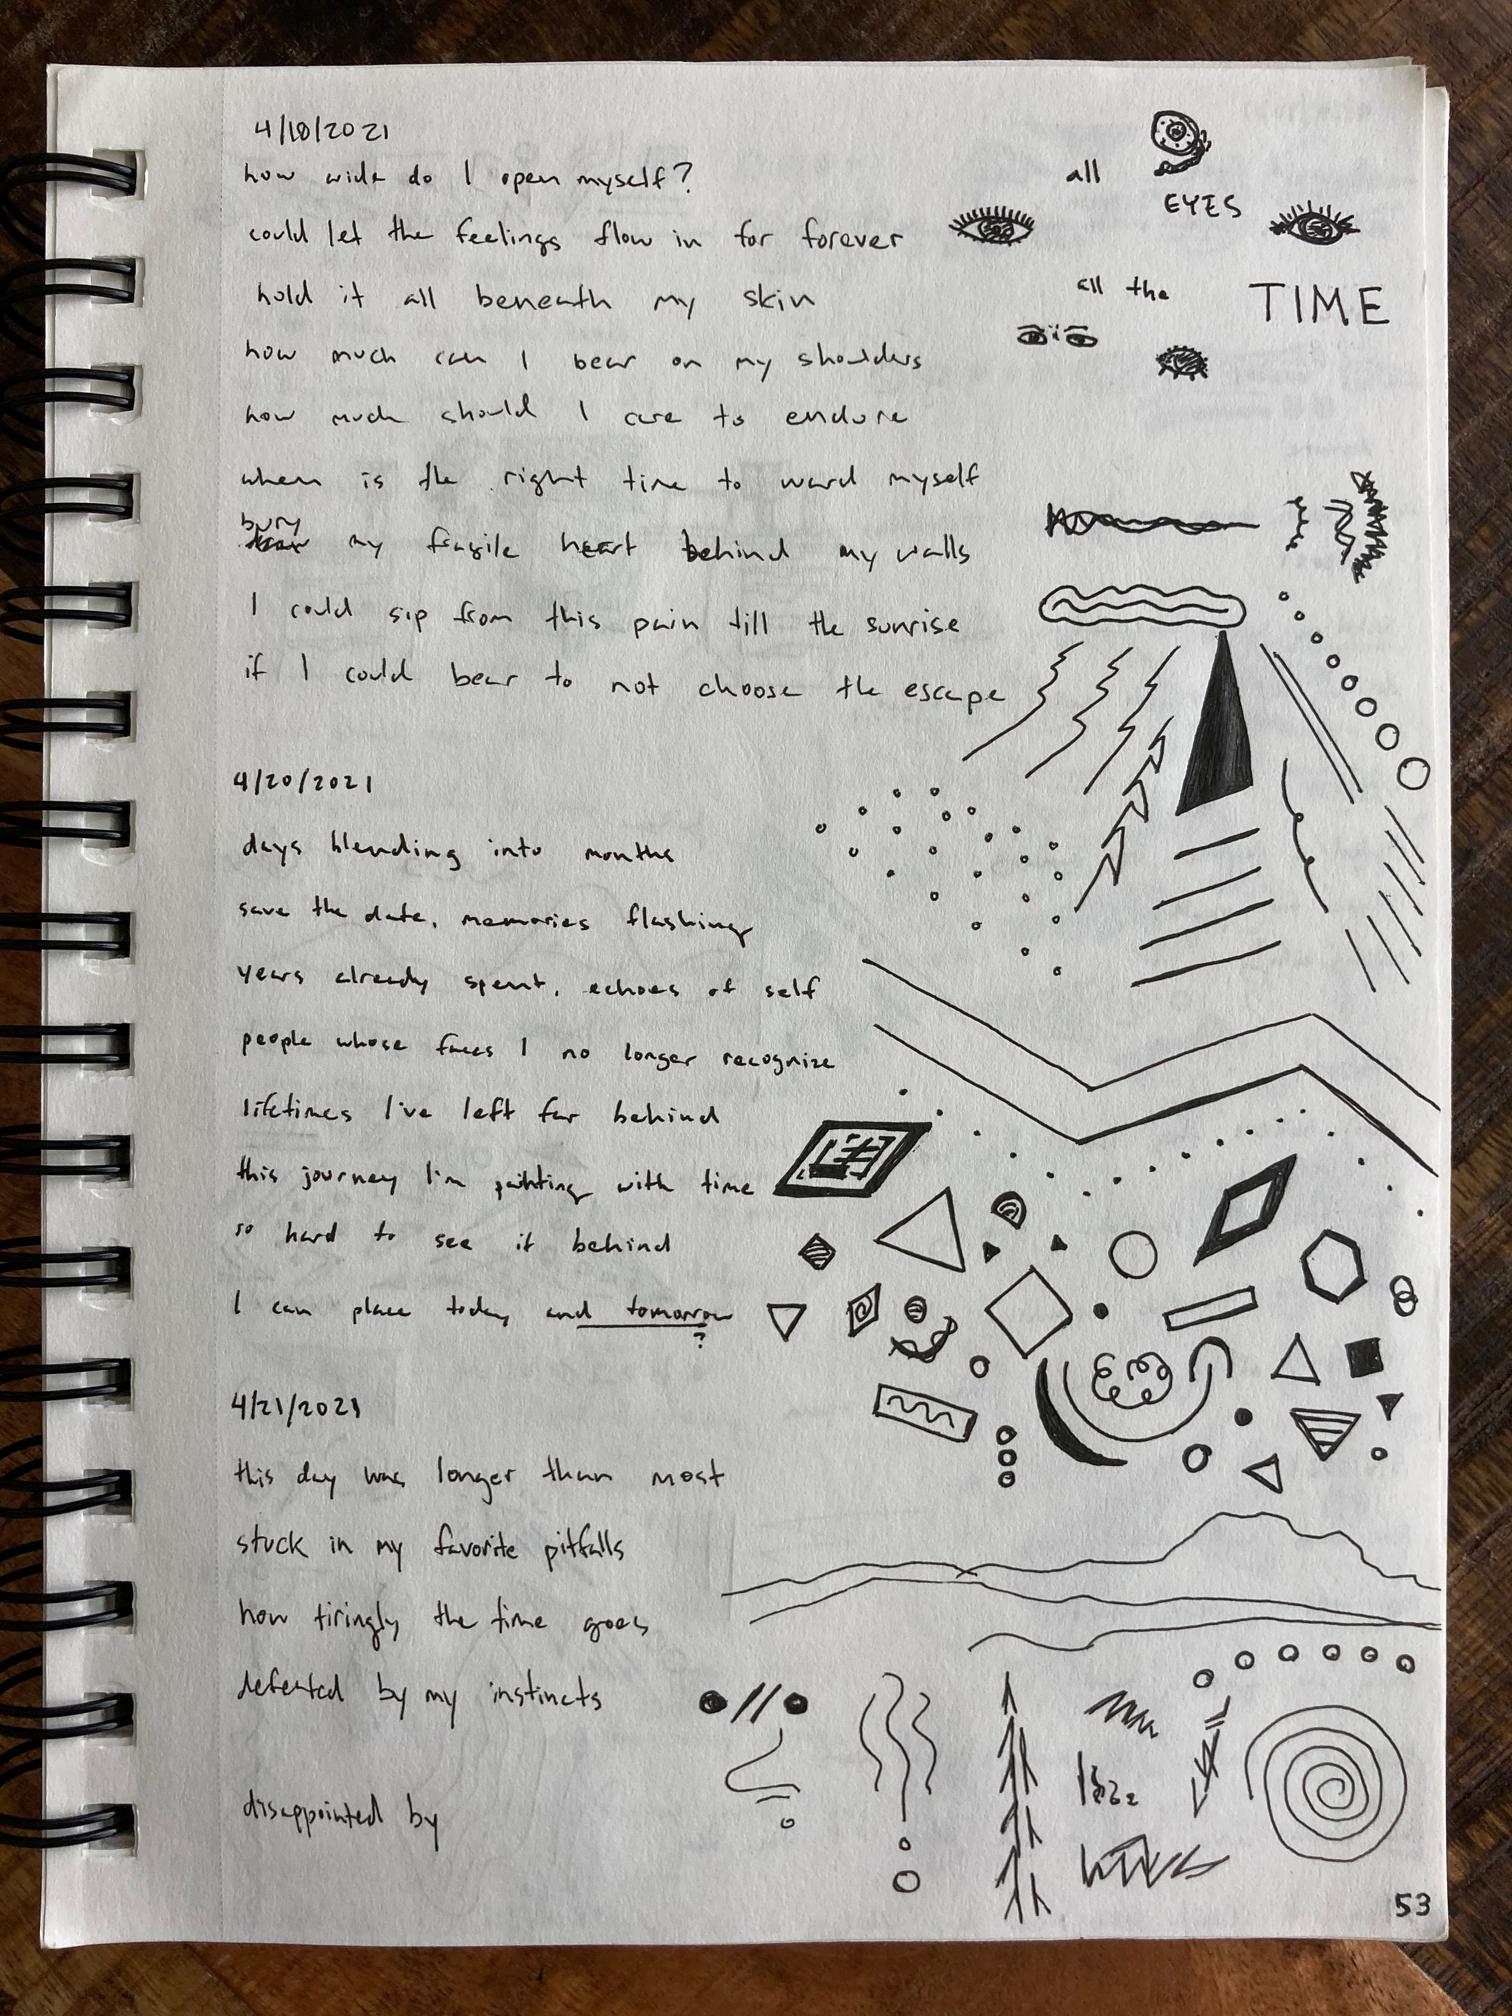 4/18/2021
how wide do I open myself?
could let the feelings flow in for forever
hold it all beneath my skin
how much can I bear on my shoulders
how much should I care to endure
when is the right time to ward myself
bury my fragile heart behind my walls
I could sip from this pain till the sunrise
if I could bear to not choose the escape
all
EYES
all the TIME
4/20/2021
days blending into months
save the date, memories flashing
years already spent, echoes of self
people whose faces I no longer recognize
lifetimes I've left far behind
this journey I'm painting with time
so hard to see it behind
I can place today and tomorrow
?
4/21/2021
this day was longer than most
stuck in my favorite pitfalls
how tiringly the time goes
defeated by my instincts
disappointed by
53